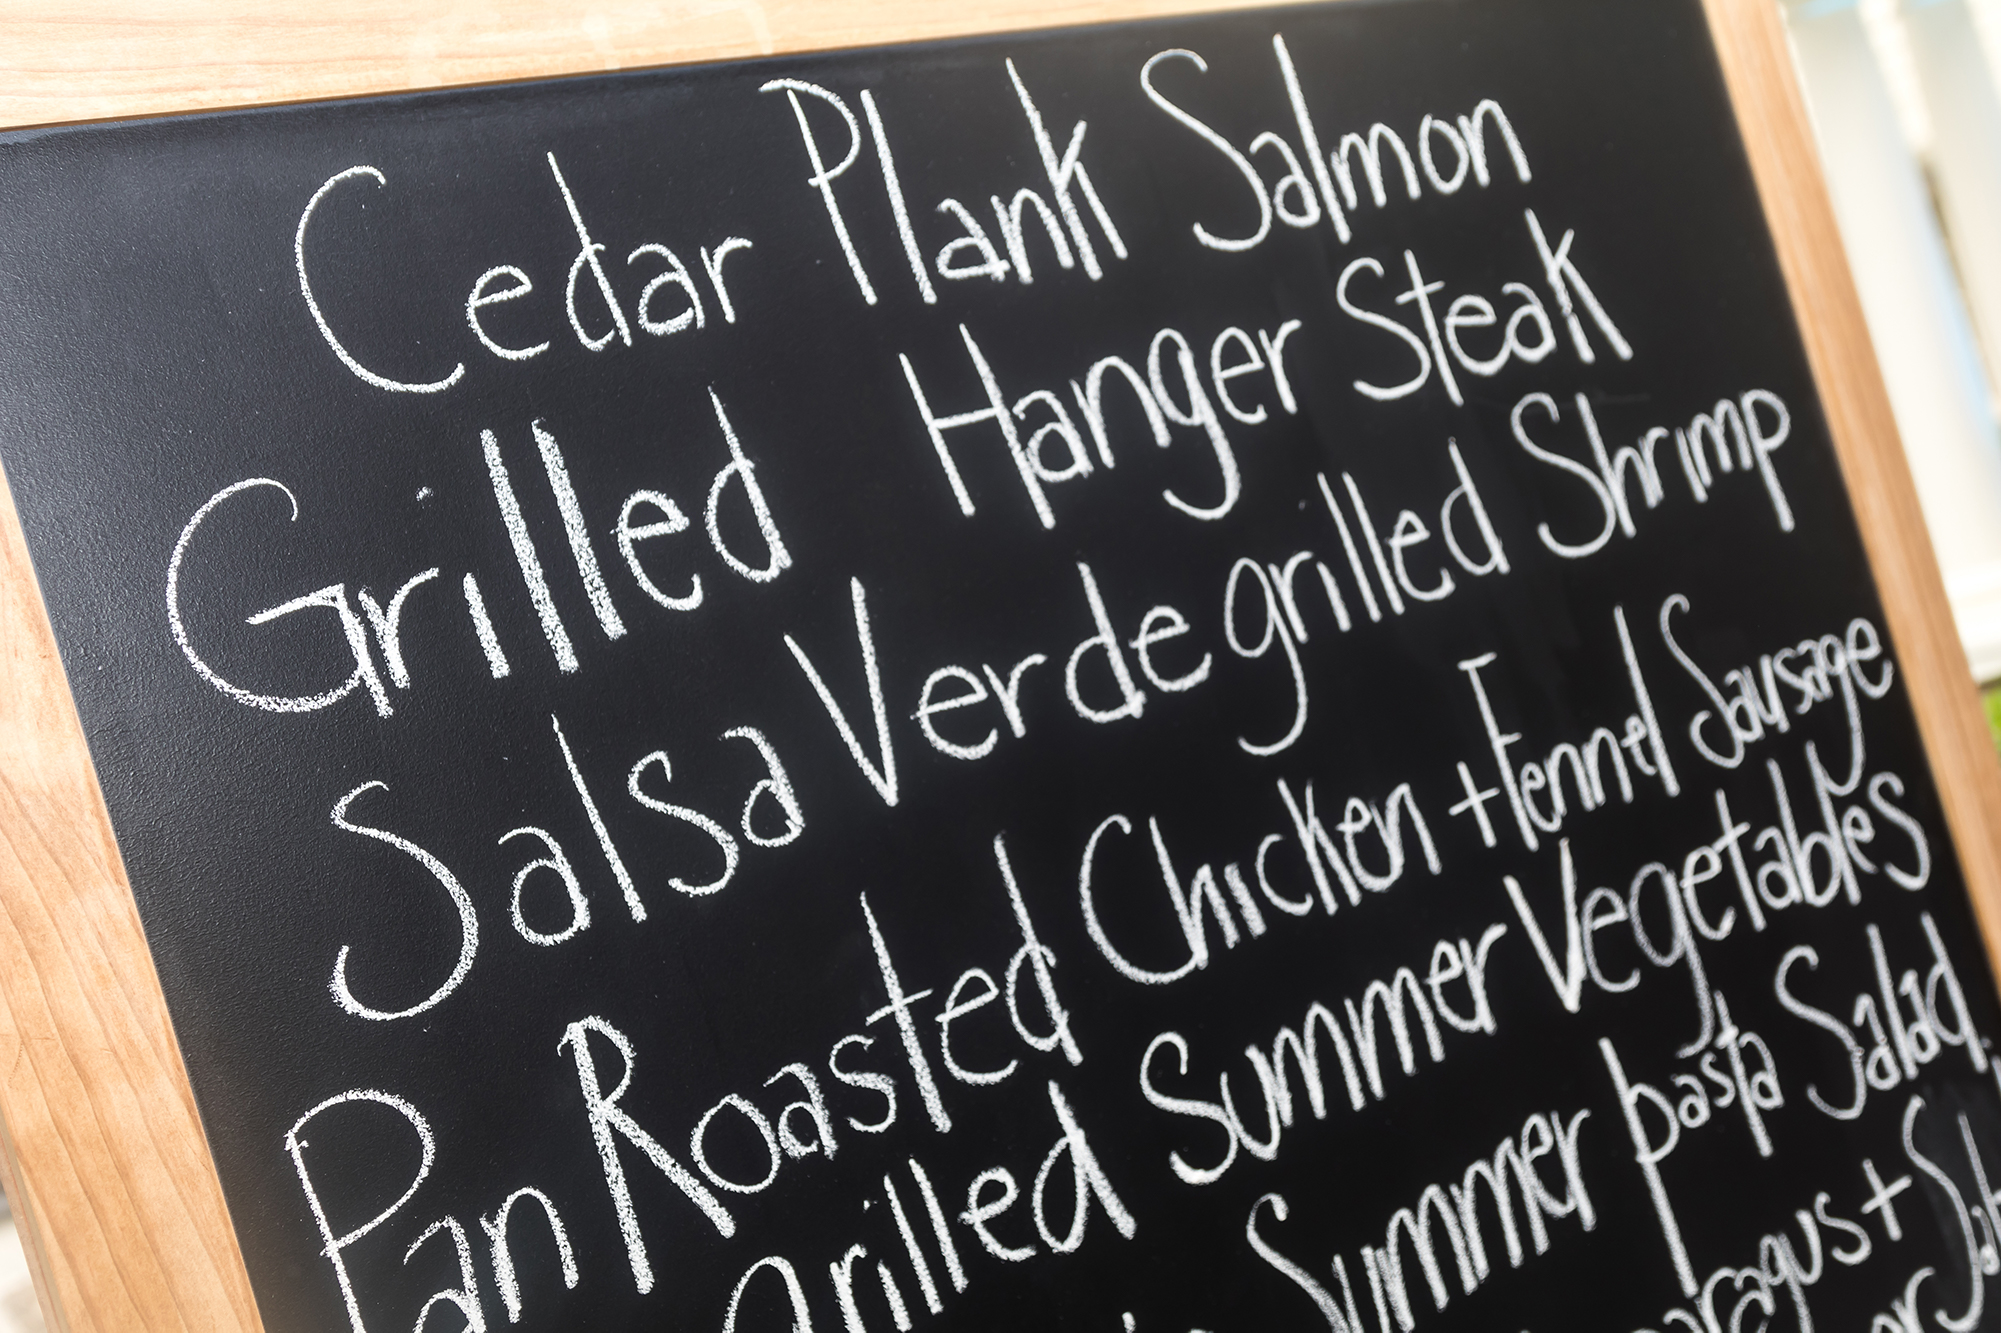 Cedar Plank Salmon
Grilled Hanger Steak
Salsa Verde grilled Shrimp
Pan Roasted Chicken + Fennel Sausage
Grilled Summer Vegetables
Summer pasta Salad